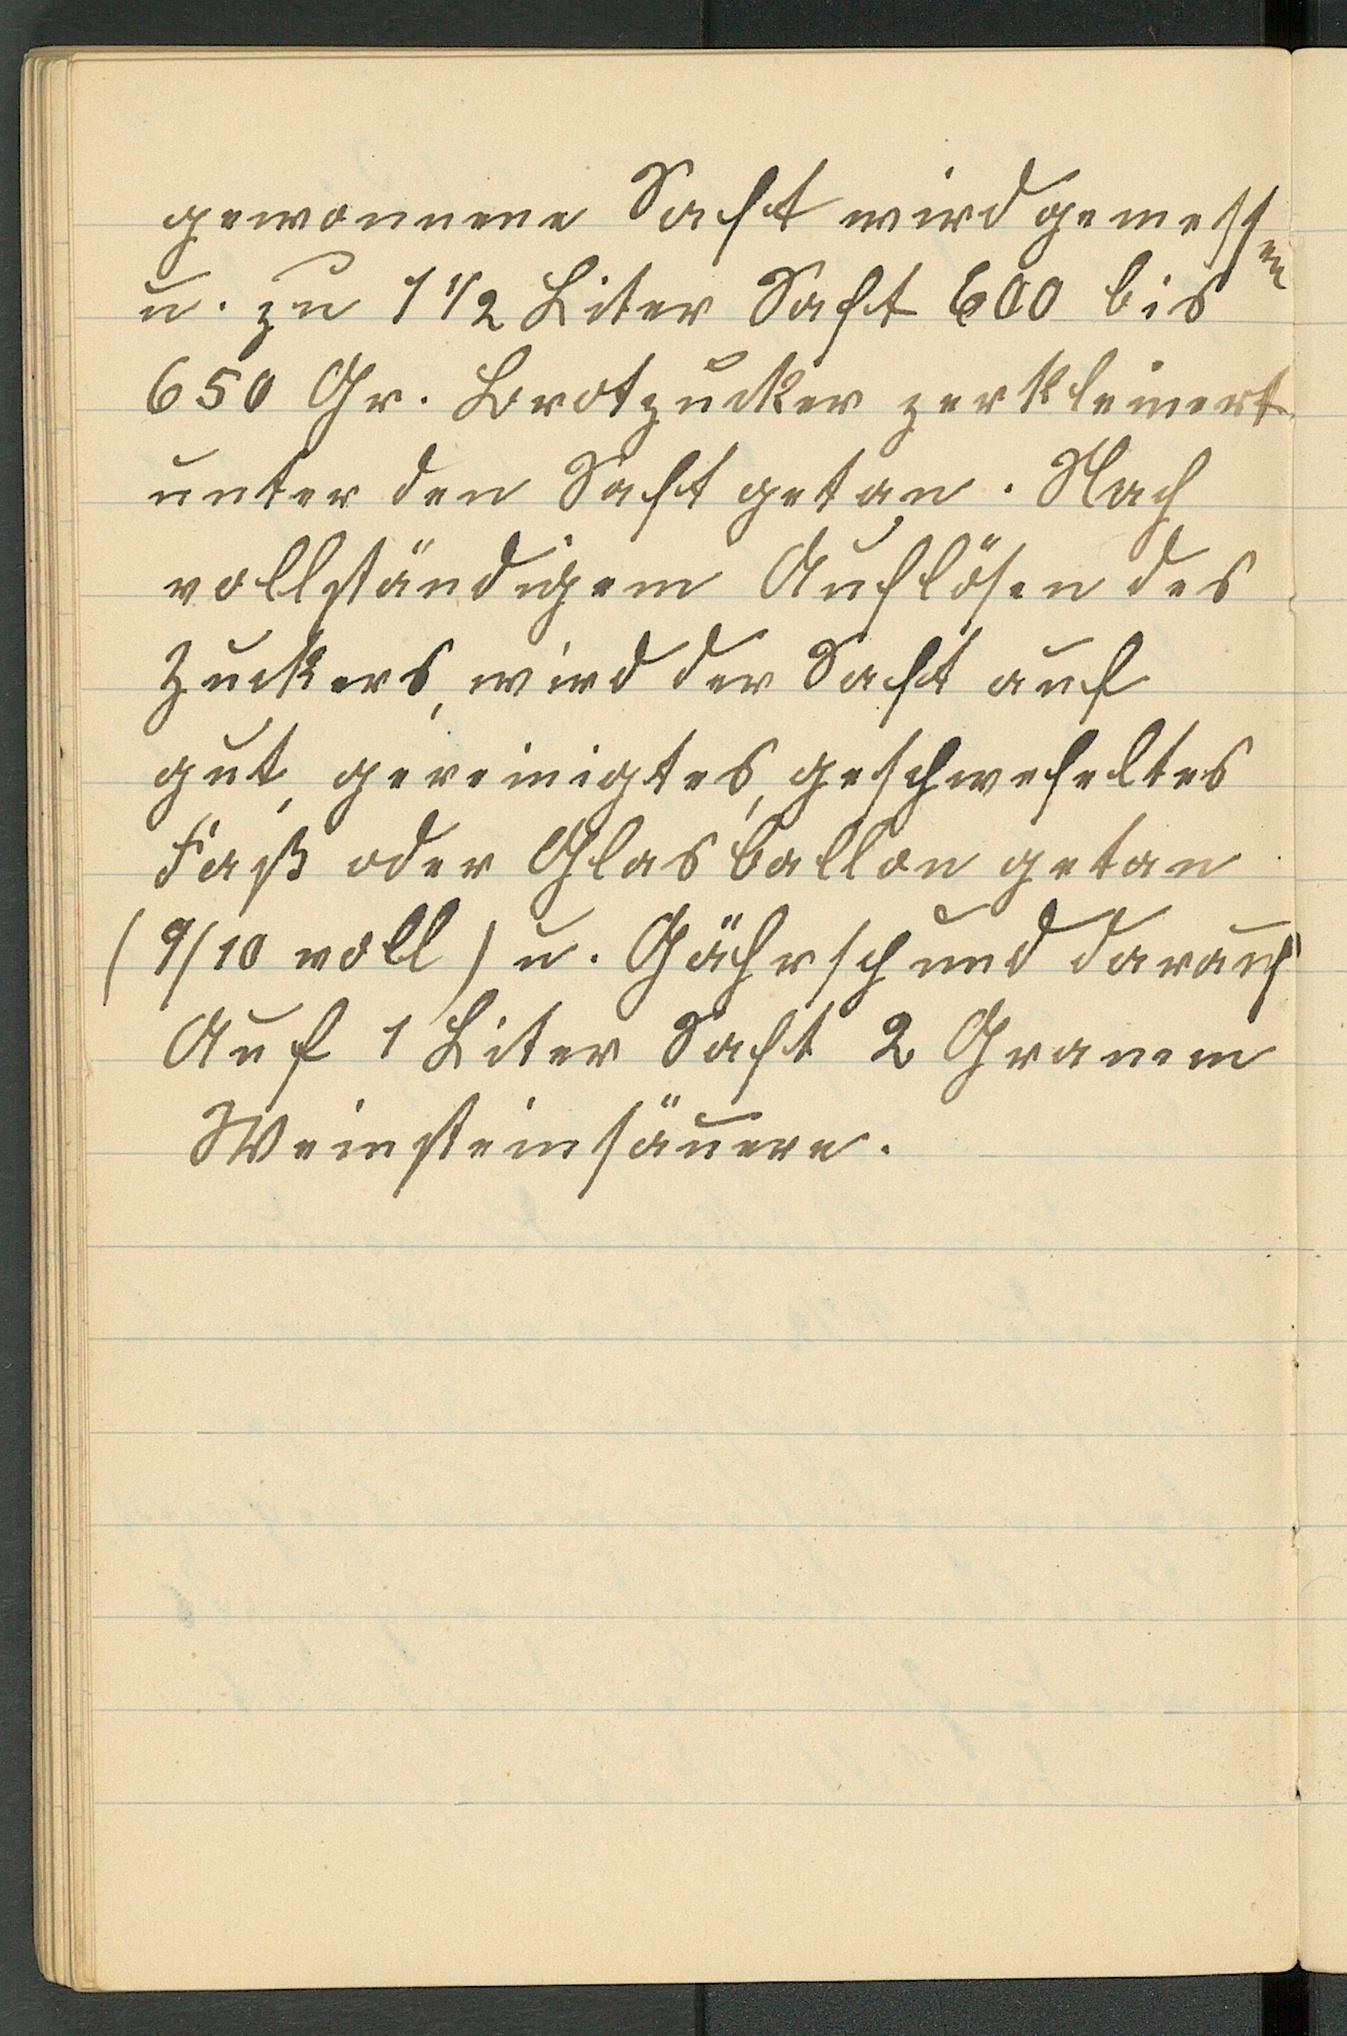 gewonnene Saft wird gemessen
u. zu 1 1/2 Liter Saft 600 bis
650 Gr. Brotzucker zerkleinert
unter den Saft getan. Nach
vollständigem Auflösen des
Zuckers, wird der Saft auf
gut, gereinigtes, geschwefeltes
Faß oder Glasballon getan
(9/10 voll) u. Gährschund darauf
Auf 1 Liter Saft 2 Gramm
Weinsteinsäuere.